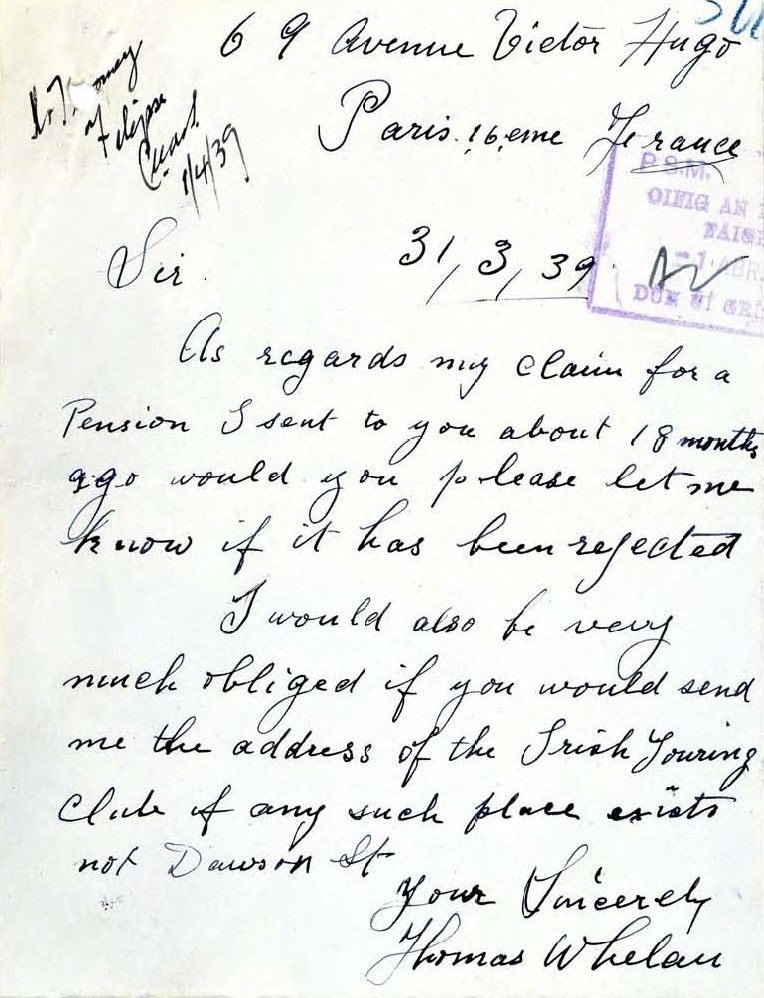 69 Avenue Victor Hugo
Paris 16eme France
1/4/39
31/3/39
P.S.M.
OIFIG AN
DÚN UÍ
Sir
As regards my claim for a
Pension I sent to you about 18 months
ago would you please let me
know if it has been rejected
I would also be very
much obliged if you would send
me the address of the Irish Touring
Club if any such place exists
not Dawson St
Your Sincerely
Thomas Whelan